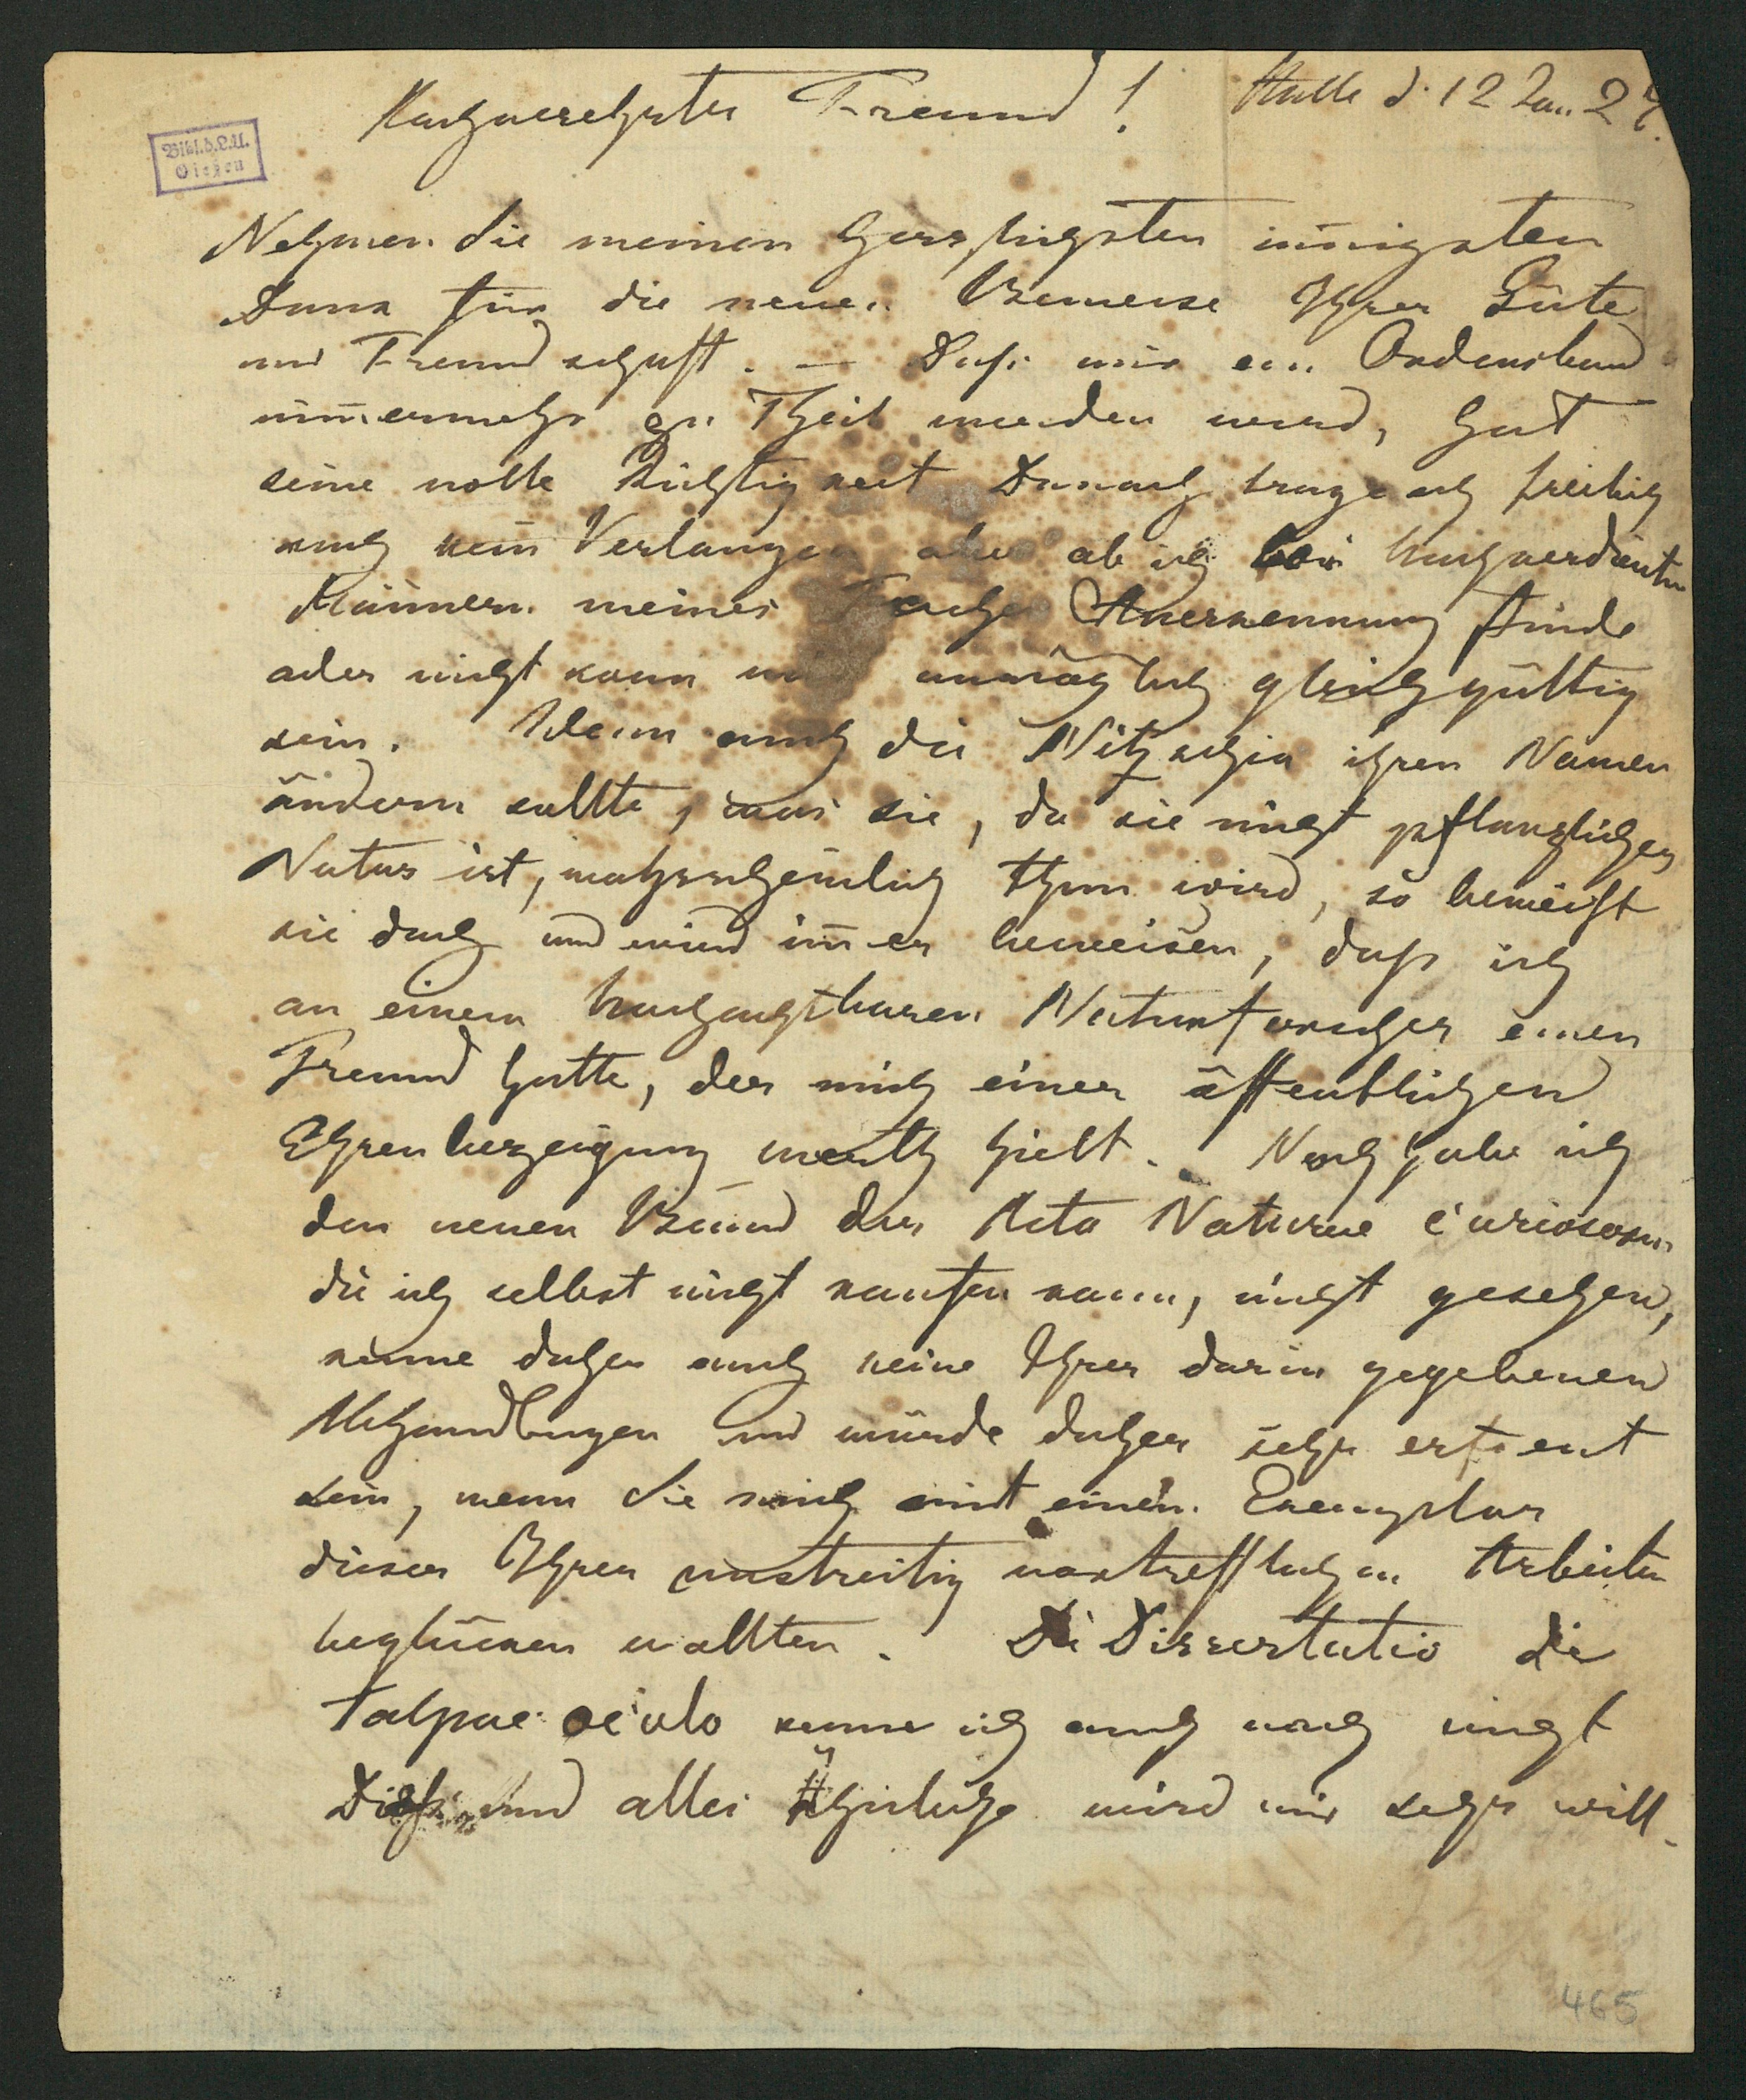 Hochverehrter Freund! Halle d. 12 Jan. 27.
Bibl. d. L.U.
Gießen
Nehmen Sie meinen herzlichsten innigsten
Dank für die neuen Beweise Ihrer Güte
und Freundschaft. — Daß mir ein Ordensband
nim̅ermehr zu Theil werden wird, hat
seine volle Richtigkeit Danach trage ich freilich
auch kein Verlangen aber ob ich bei hochverdienten
Männern meines Fachs Anerkennung finde
oder nicht kann mir unmöglich gleichgültig
sein. Wenn auch die Nitzschia ihren Namen
ändern sollte, was sie, da sie nicht pflanzlicher
Natur ist, wahrscheinlich thun wird, so beweist
sie doch und wird im̅er beweisen, daß ich
an einem hochachtbaren Naturforscher einen
Freund hatte, der mich einer öffentlichen
Ehrenbezeigung werth hielt. Noch habe ich
den neuen Band der Acta Naturae Curiosorum
die ich selbst nicht kaufen kann, nicht gesehen,
kenne daher auch keine Ihrer darin gegebenen
Abhandlungen und würde daher sehr erfreut
sein, wenn Sie mich mit einem Exemplar
dieser Ihrer unstreitig vortrefflichen Arbeiten
beglücken wollten. Die Dissertatio de
Talpae oculo kenne ich auch noch nicht
Dieß und alles Ähnliche wird mir sehr will-
465